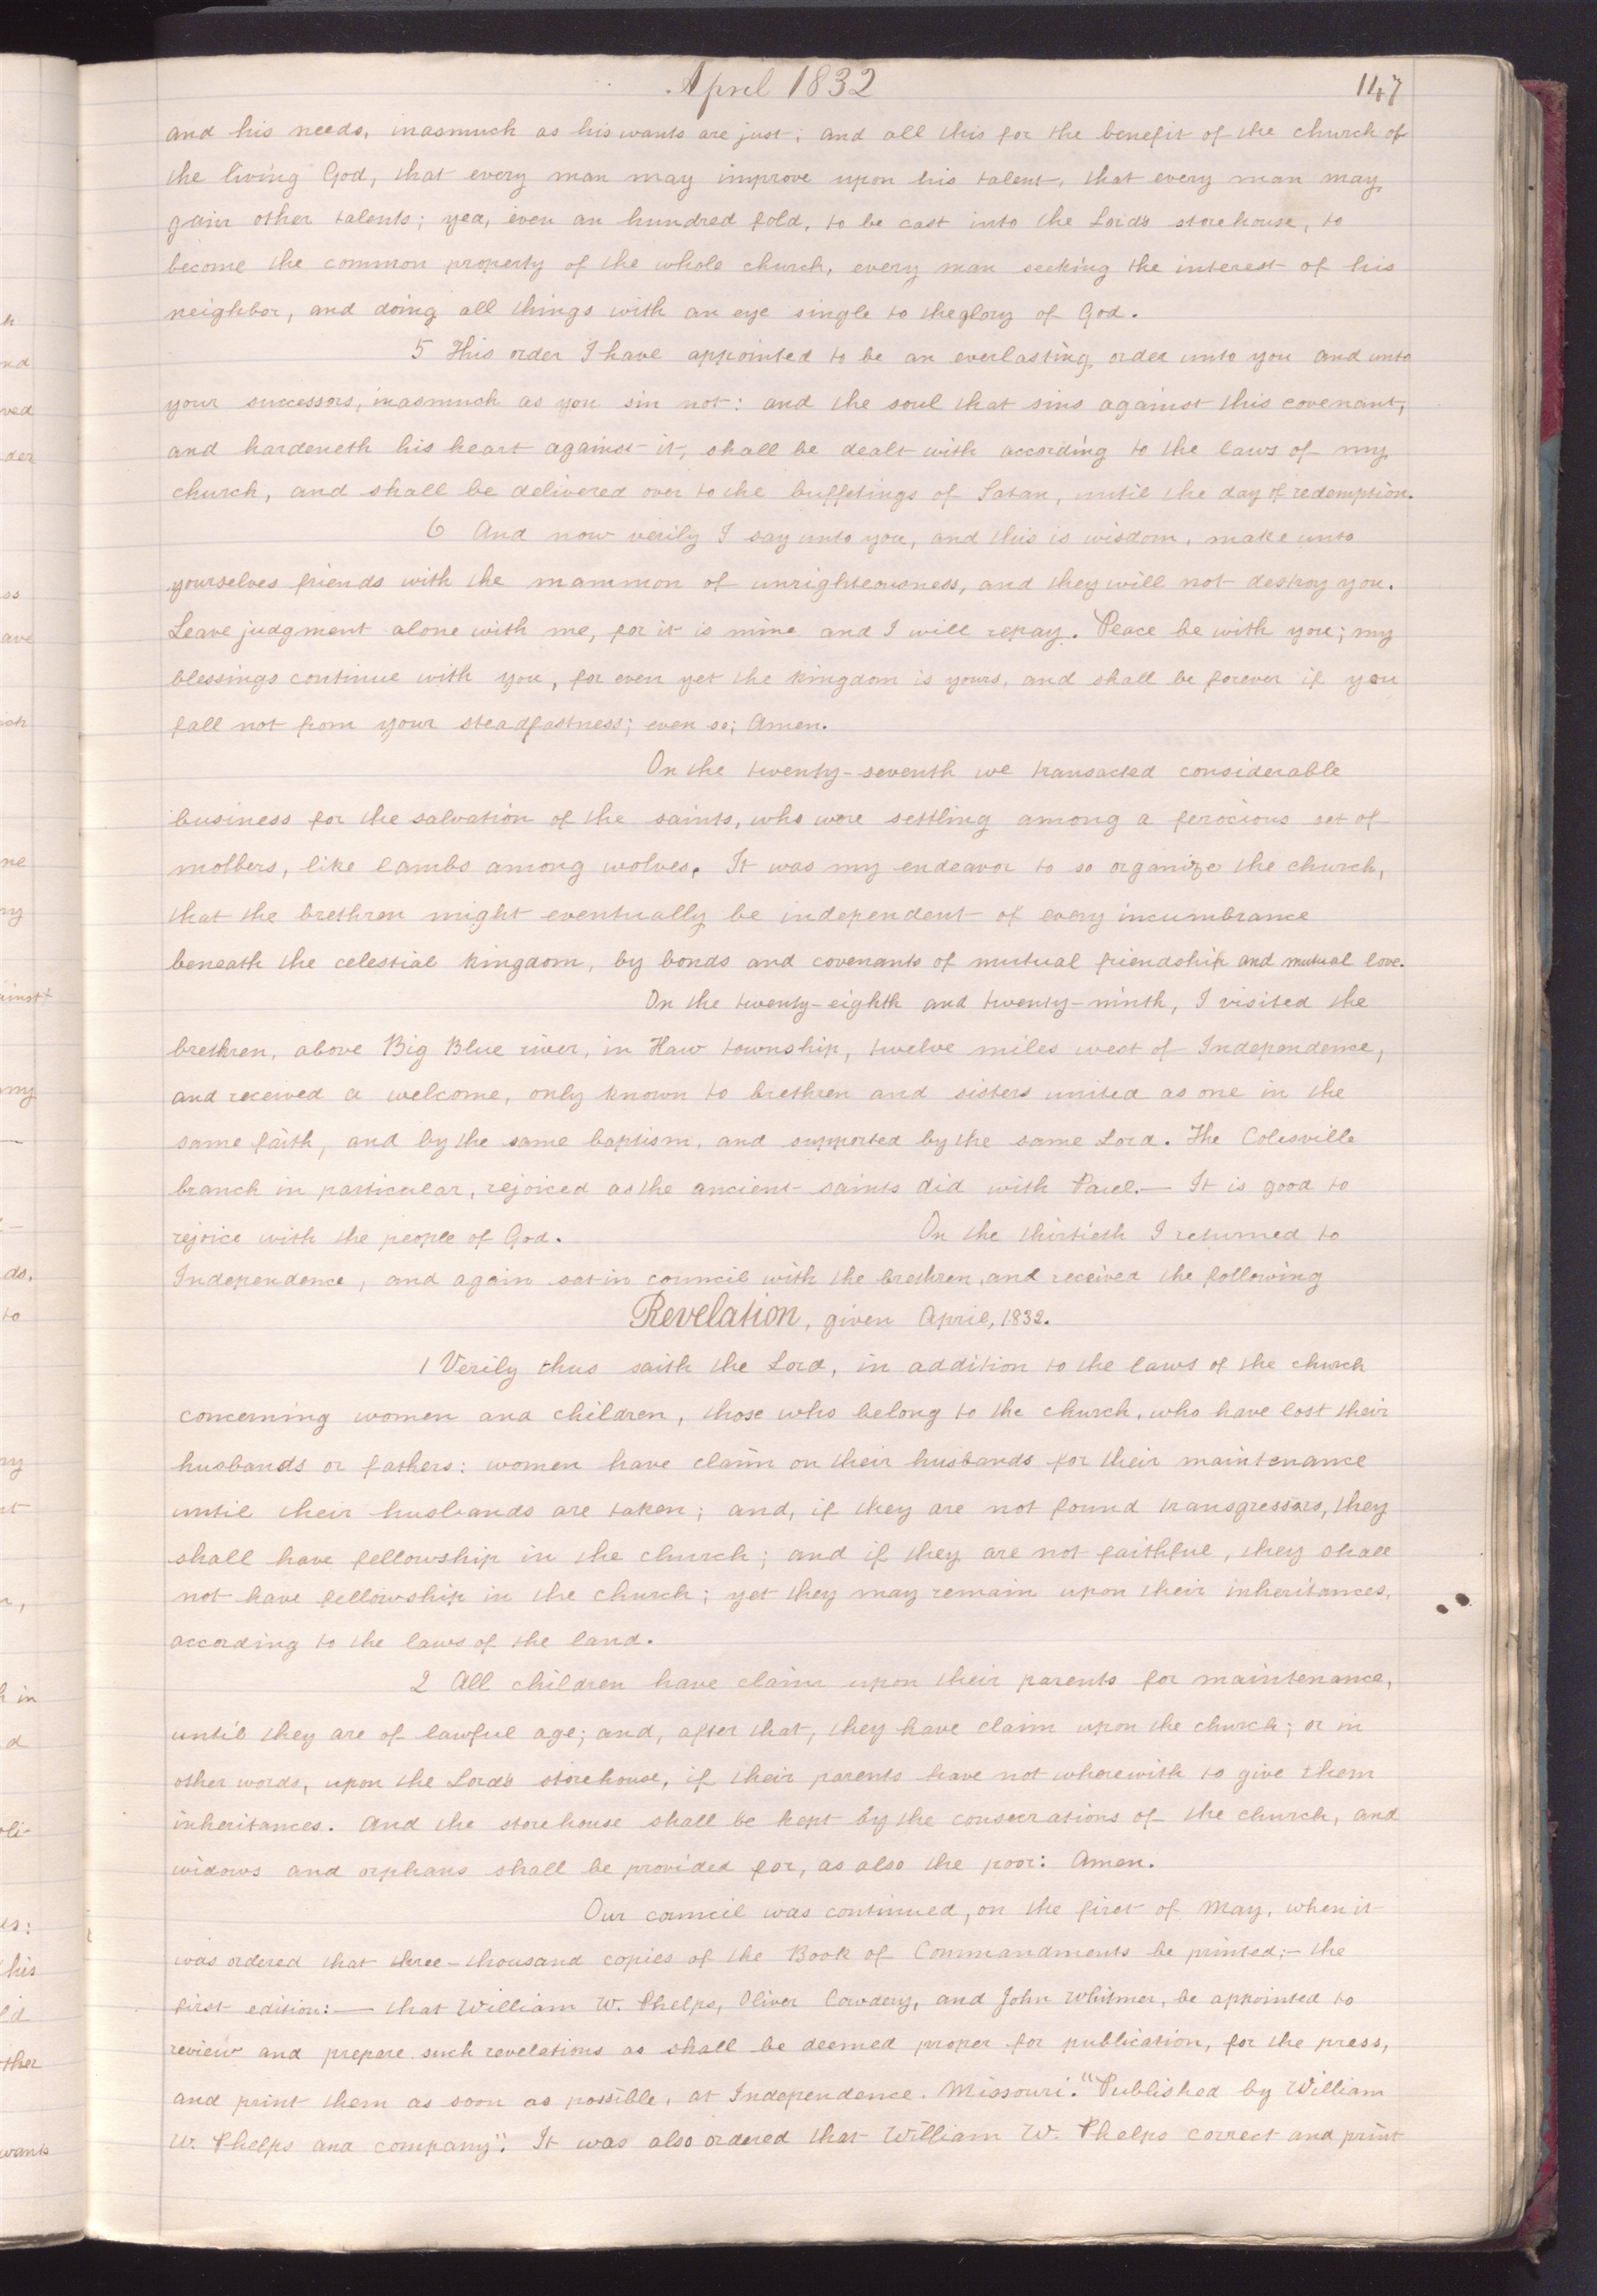 April 1832
147
and his needs, inasmuch as his wants are just; and all this for the benefit of the church of
the living God, that every man may improve upon his talent, that every man may
gain other talents; yea, even an hundred fold, to be cast into the Lord's storehouse, to
become the common property of the whole church, every man seeking the interest of his
neighbor, and doing all things with an eye single to the glory of God.
5 This order I have appointed to be an everlasting order unto you and unto
your successors, inasmuch as you sin not: and the soul that sins against this covenant,
and hardeneth his heart against it, shall be dealt with according to the laws of my
church, and shall be delivered over to the buffetings of Satan, until the day of redemption.
6 And now verily I say unto you, and this is wisdom, make unto
yourselves friends with the mammon of unrighteousness, and they will not destroy you.
Leave judgment alone with me, for it is mine and I will repay. Peace be with you; my
blessings continue with you, for even yet the kingdom is yours, and shall be forever if you
fall not from your steadfastness; even so; Amen.
On the twenty-seventh we transacted considerable
business for the salvation of the saints, who were settling among a ferocious set of
mobbers, like lambs among wolves. It was my endeavor to so organize the church,
that the brethren might eventually be independent of every incumbrance
beneath the celestial kingdom, by bonds and covenants of mutual friendship and mutual love.
On the twenty-eighth and twenty-ninth, I visited the
brethren, above Big Blue river, in Kaw township, twelve miles west of Independence,
and received a welcome, only known to brethren and sisters united as one in the
same faith, and by the same baptism, and supported by the same Lord. The Colesville
branch in particular, rejoiced as the ancient saints did with Paul.— It is good to
rejoice with the people of God. On the thirtieth I returned to
Independence, and again sat in council with the brethren, and received the following
Revelation, given April, 1832.
1 Verily thus saith the Lord, in addition to the laws of the church
concerning women and children, those who belong to the church, who have lost their
husbands or fathers: women have claim on their husbands for their maintenance
until their husbands are taken; and, if they are not found transgressors, they
shall have fellowship in the church; and if they are not faithful, they shall
not have fellowship in the church; yet they may remain upon their inheritances,
according to the laws of the land.
2 All children have claim upon their parents for maintenance,
until they are of lawful age; and, after that, they have claim upon the church; or in
other words, upon the Lord's storehouse, if their parents have not wherewith to give them
inheritances. And the storehouse shall be kept by the consecrations of the church, and
widows and orphans shall be provided for, as also the poor: Amen.
Our council was continued, on the first of May, when it
was ordered that three-thousand copies of the Book of Commandments be printed;— the
first edition:— that William W. Phelps, Oliver Cowdery, and John Whitmer, be appointed to
review and prepare such revelations as shall be deemed proper for publication, for the press,
and print them as soon as possible, at Independence. Missouri. "Published by William
W. Phelps and company". It was also ordered that William W. Phelps correct and print